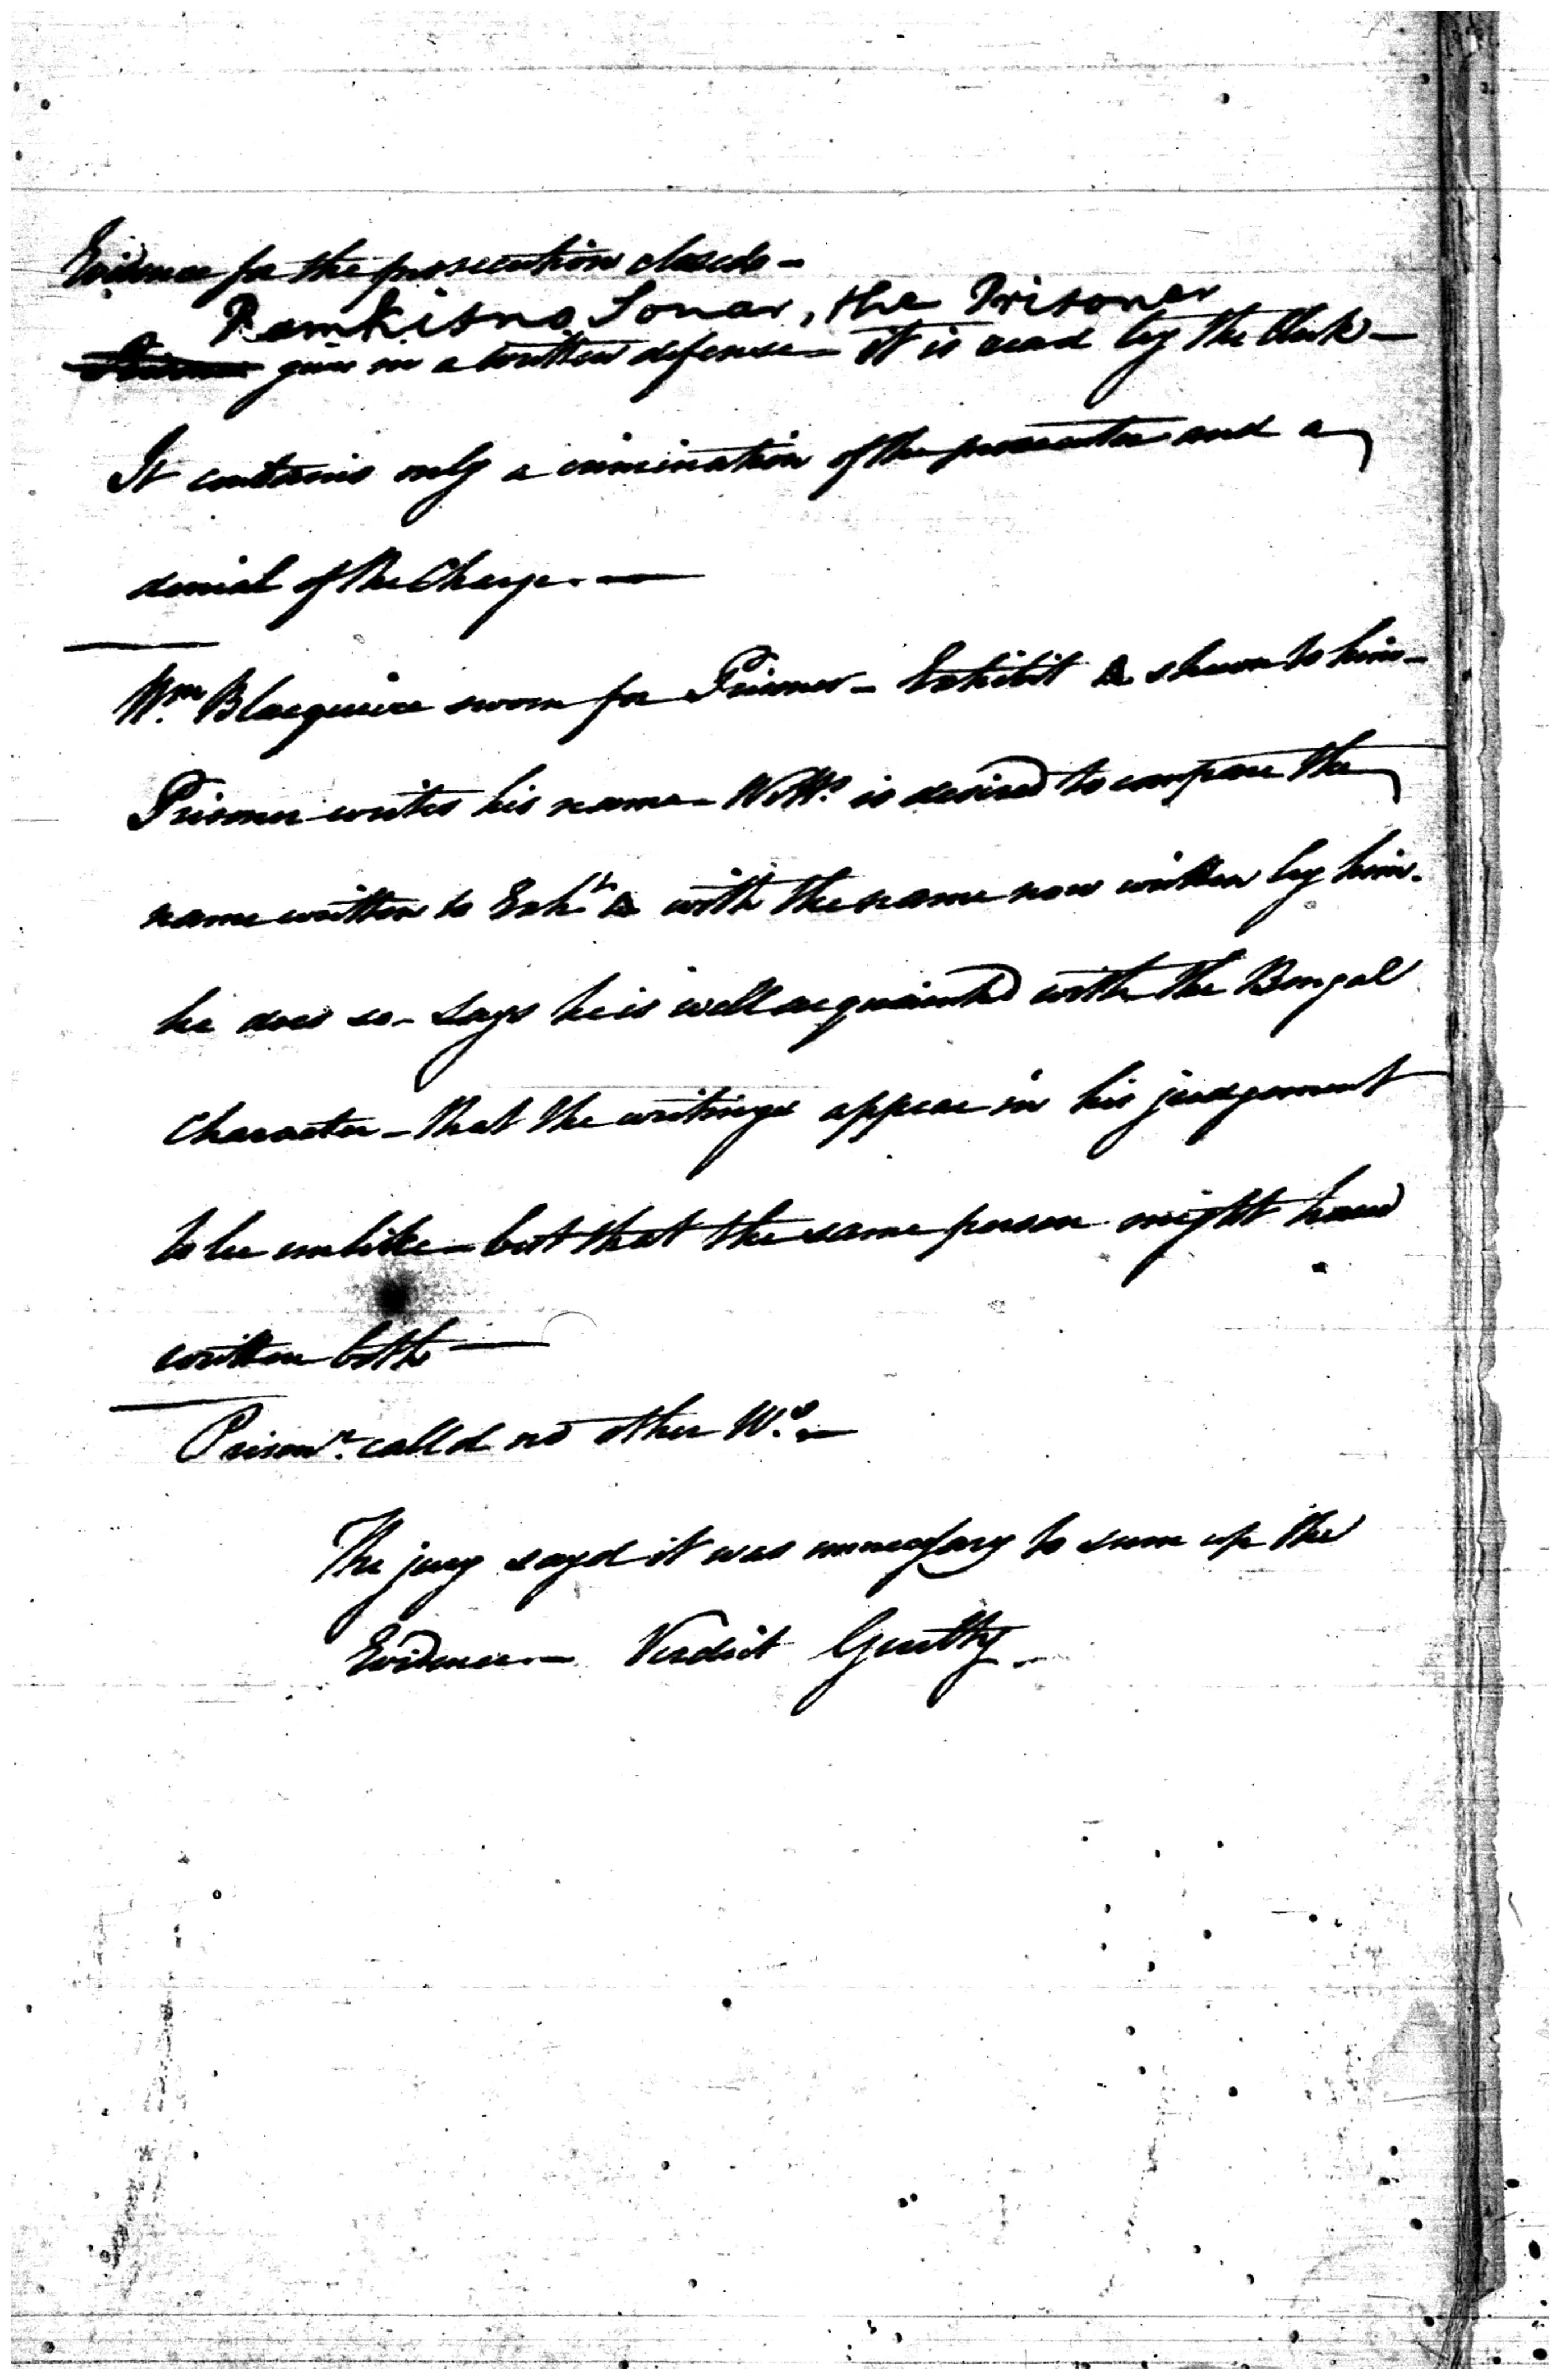 Evidence for the prosecution closed -
Ramkisno Sonar, the Prisoner
gives in a written defense - it is read by the Clerk -
It contains only a crimination of the prosecutor and a
denial of the Charge. —
Wm. Blaquiere sworn for Prisoner - Exhibit A shewn to him -
Prisoner writes his name - Wits. is desired to compare the
name written to Exht. A with the name now written by him.
he does so - says he is well acquainted with the Bengal
Character - that the writings appear in his judgement
to be unlike - but that the same person might have
written both —
Prisonr. calld no other Ws. -
The jury sayd it was unnecessary to sum up the
Evidence - Verdict Guilty.